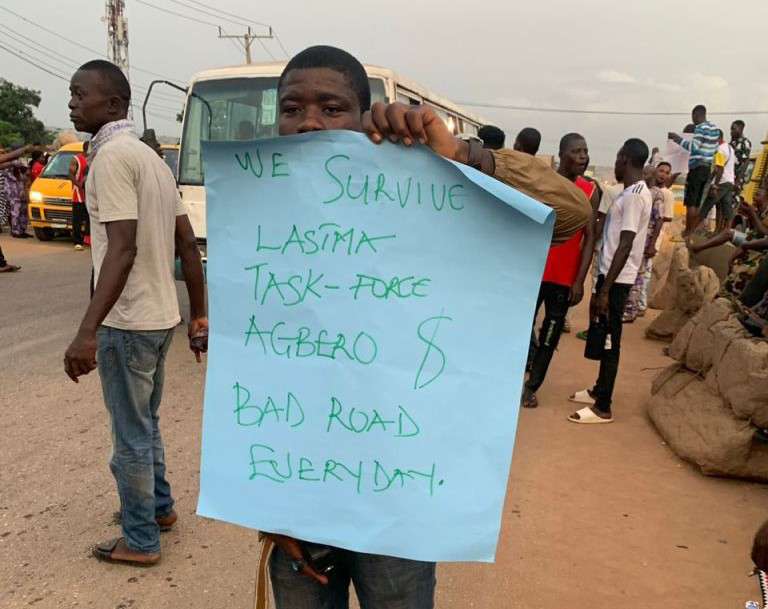 WE SURVIVE
LASTMA
TASK-FORCE
AGBERO $
BAD ROAD
EVERYDAY.